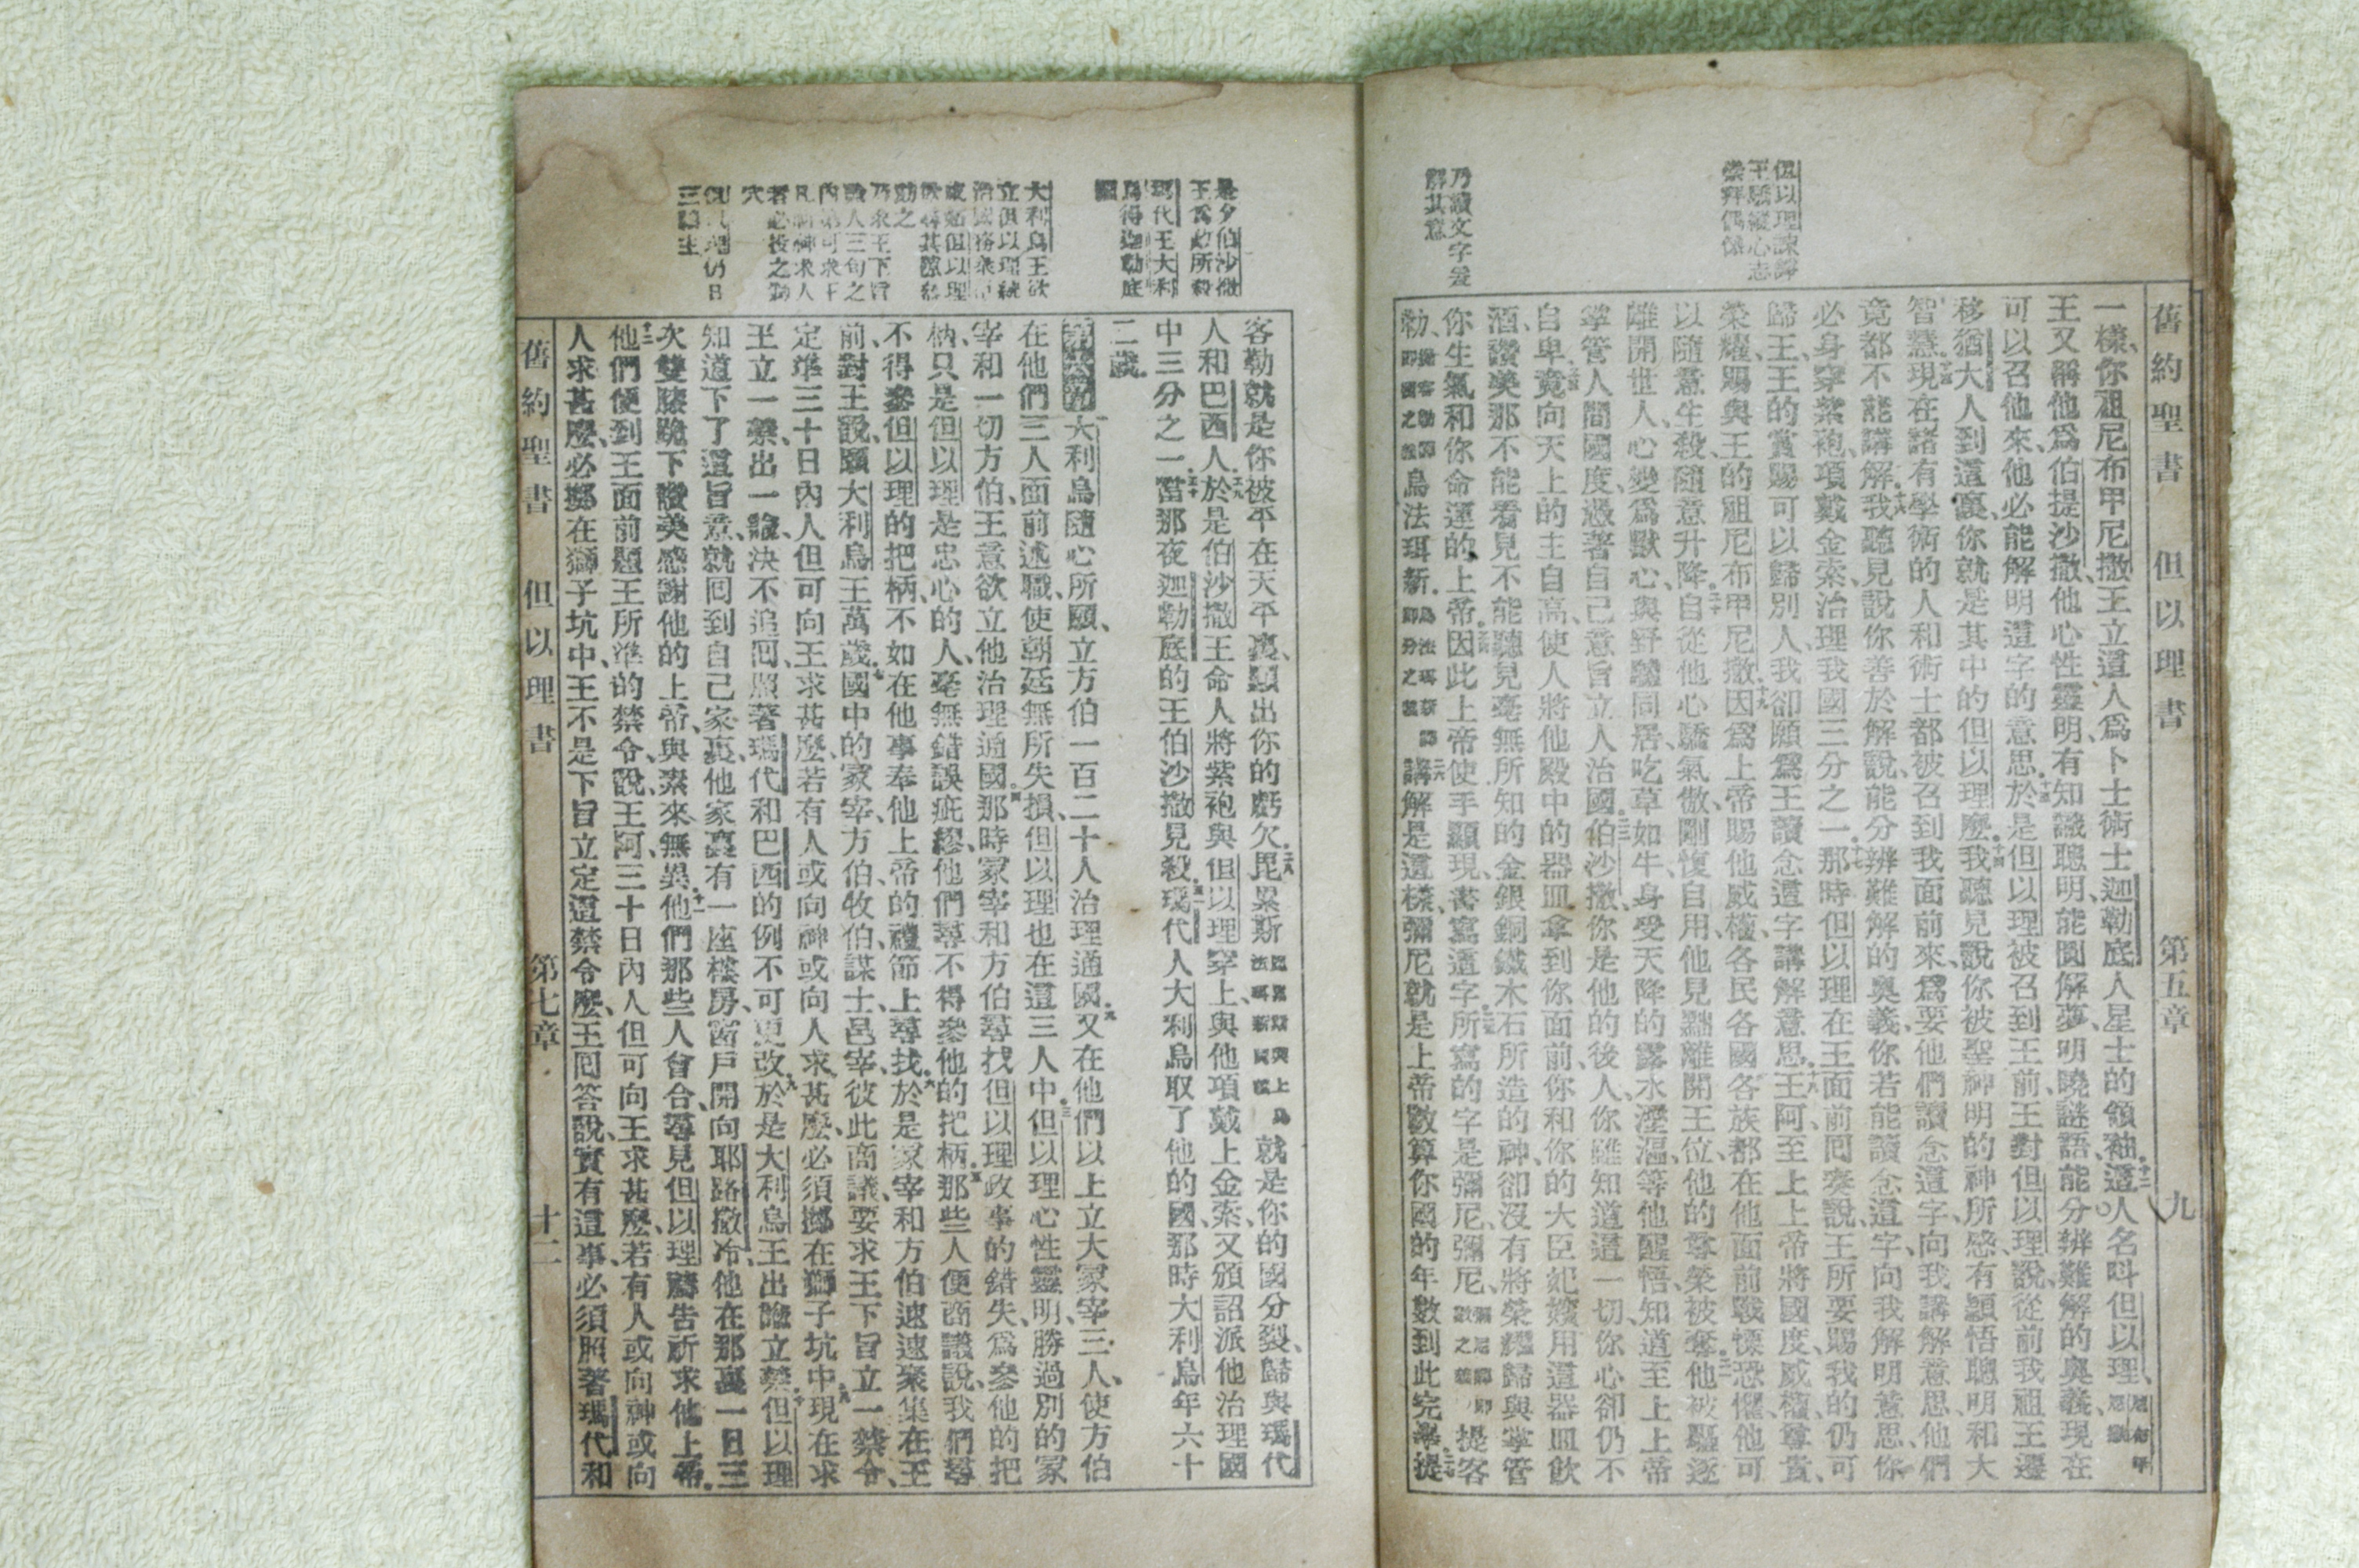 舊約聖書 但以理書 第五章 九
但以理諫諍
王驕縱心志
崇拜偶像
乃讀文字爰
解其意
一樣、你祖尼布甲尼撒王立這人爲卜士術士迦勒底人星士的領袖、這人名叫但以理、
王又稱他爲伯提沙撒、他心性靈明、有知識聰明、能圓解夢、明曉謎語、能分辨難解的奧義、現在
可以召他來、他必能解明這字的意思、於是但以理被召到王前、王對但以理說、從前我祖王遷
移猶大人到這裏、你就是其中的但以理麼、我聽見說你被聖神明的神所感、有穎悟聰明和大
智慧、現在諸有學術的人和術士都被召到我面前來、爲要他們讀念這字、向我講解意思、他們
竟都不能講解、我聽見說你善於解說、能分辨難解的奧義、你若能讀念這字、向我解明意思、你
必身穿紫袍、項戴金索、治理我國三分之一、那時但以理在王面前回奏說、王所要賜我的仍可
歸王、王的賞賜可以歸別人、我卻願爲王讀念這字、講解意思、王阿、至上上帝將國度、威權、尊貴、
榮耀、賜與王的祖尼布甲尼撒、因爲上帝賜他威權、各民各國各族都在他面前戰慄恐懼、他可
以隨意生殺、隨意升降、自從他心驕氣傲、剛愎自用、他見黜離開王位、他的尊榮被奪、他被驅逐
離開世人、心變爲獸心、與野驢同居、吃草如牛、身受天降的露水溼漚、等他醒悟、知道至上上帝
掌管人間國度、憑著自己意旨立人治國、伯沙撒、你是他的後人、你雖知道這一切、你心卻仍不
自卑、竟向天上的主自高、使人將他殿中的器皿拿到你面前、你和你的大臣妃嬪用這器皿飲
酒、讚美那不能看見不能聽見毫無所知的金銀銅鐵木石所造的神、卻沒有將榮耀歸與掌管
你生氣和你命運的上帝、因此上帝使手顯現、書寫這字、所寫的字是彌尼、彌尼、提客
勒、烏法珥新、講解是這樣、彌尼就是上帝數算你國的年數到此完畢、提
是夕伯沙撒
王爲敵所殺
瑪代王大利
烏得迦勒底
國
大利烏王欲
立但以理統
治國務衆臣
勸之
乃求王下旨
者必投之獅
穴
客勒就是你被平在天平裏、顯出你的虧欠、毘累斯 就是你的國分裂、歸與瑪代
人和巴西人、於是伯沙撒王命人將紫袍與但以理穿上、與他項戴上金索、又頒詔派他治理國
中三分之一、當那夜迦勒底的王伯沙撒見殺、瑪代人大利烏取了他的國、那時大利烏年六十
二歲、
第六章 大利烏隨心所願、立方伯一百二十人治理通國、又在他們以上立大冢宰三人、使方伯
在他們三人面前述職、使朝廷無所失損、但以理也在這三人中、但以理心性靈明、勝過別的冢
宰和一切方伯、王意欲立他治理通國、那時冢宰和方伯尋找但以理政事的錯失、爲參他的把
柄、只是但以理是忠心的人、毫無錯誤疵繆、他們尋不得參他的把柄、那些人便商議說、我們尋
不得參但以理的把柄、不如在他事奉他上帝的禮節上尋找、於是冢宰和方伯速速聚集在王
前、對王說、願大利烏王萬歲、國中的冢宰、方伯、牧伯、謀士、邑宰、彼此商議、要求王下旨立一禁令、
定準三十日內、人但可向王求甚麼、若有人或向神或向人求甚麼、必須擲在獅子坑中、現在求
王立一禁、出一諭、決不追回、照著瑪代和巴西的例不可更改、於是大利烏王出諭立禁、但以理
知道下了這旨意、就回到自己家裏、他家裏有一座樓房、窗戶開向耶路撒冷、他在那裏一日三
次雙膝跪下、讚美感謝他的上帝、與素來無異、他們那些人會合、尋見但以理禱告所求他上帝、
他們便到王面前、題王所準的禁令、說、王阿、三十日內人但可向王求甚麼、若有人或向神或向
人求甚麼、必擲在獅子坑中、王不是下旨立定這禁令麼、王回答說、實有這事、必須照著瑪代和
舊約聖書 但以理書 第七章 十二